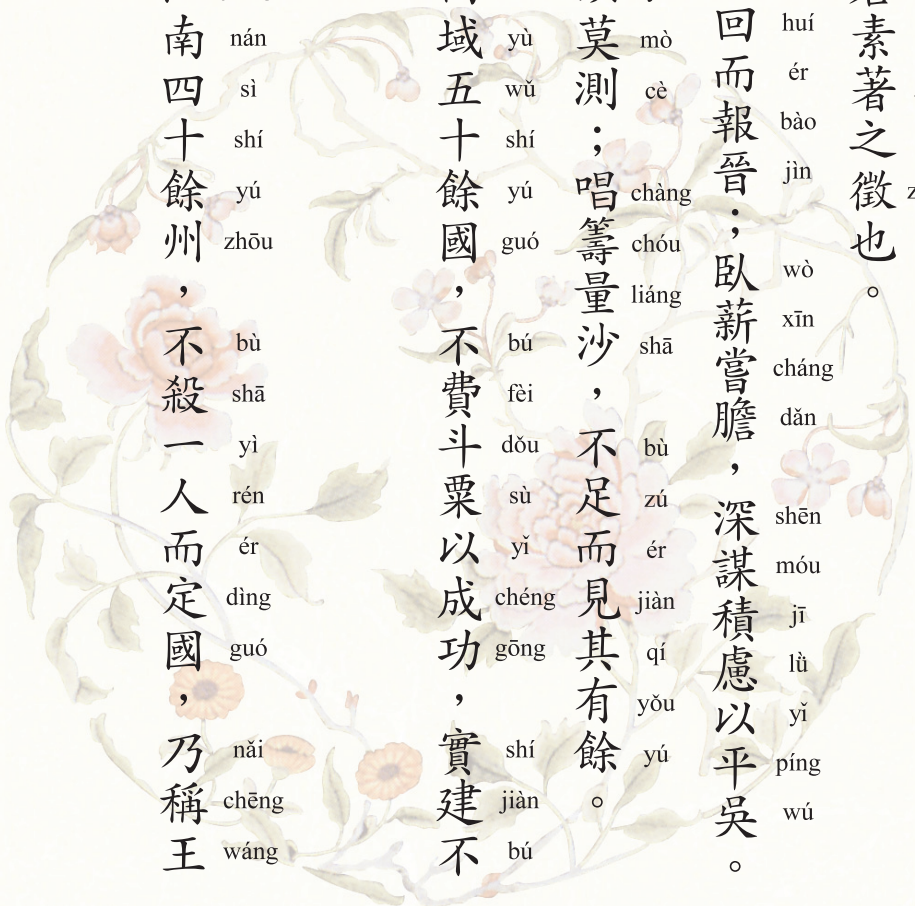 素著之徵也。
回而報晉；臥薪嘗膽，深謀積慮以平吳。
huí ér bào jìn wò xīn cháng dǎn shēn móu jī lǜ yǐ píng wú
莫測；唱籌量沙，不足而見其有餘。
mò cè chàng chóu liáng shā bù zú ér jiàn qí yǒu yú
域五十餘國，不費斗粟以成功，實建不
yù wǔ shí yú guó bú fèi dǒu sù yǐ chéng gōng shí jiàn bú
南四十餘州，不殺一人而定國，乃稱王
nán sì shí yú zhōu bù shā yì rén ér dìng guó nǎi chēng wáng